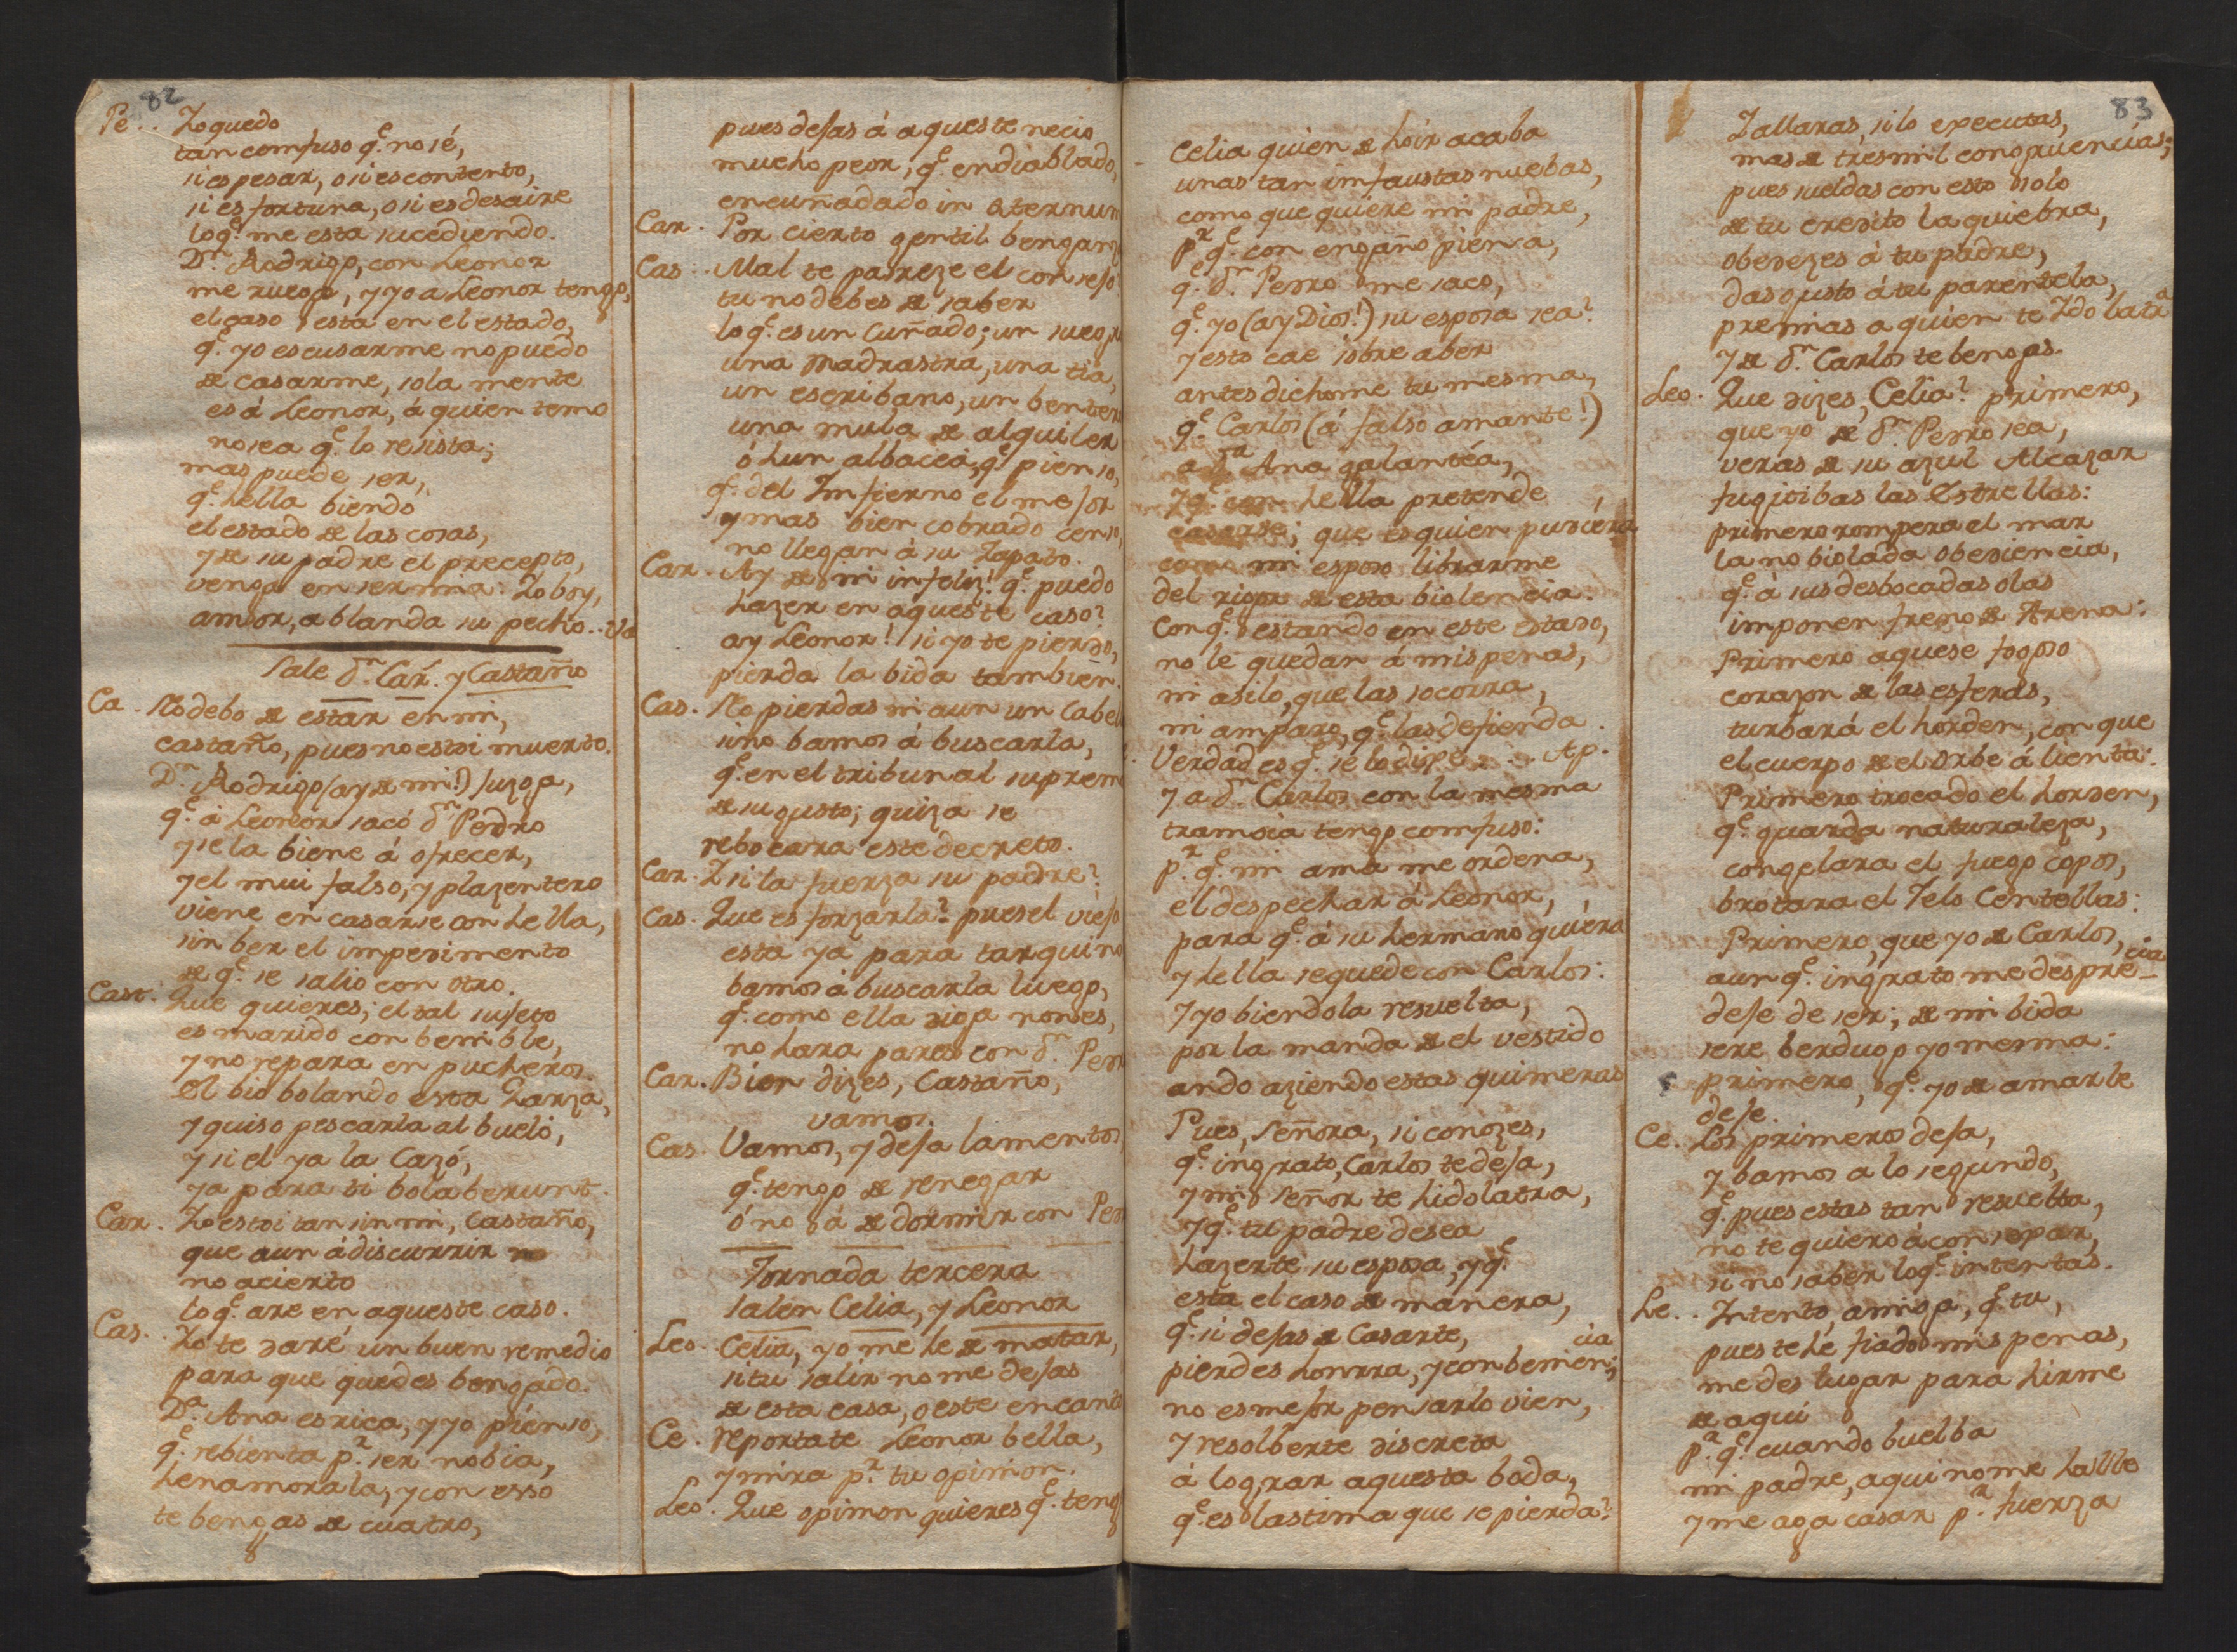 82
Pe.. Yo quedo
tan comfuso q.e no sé,
si es pesar, o si es contento,
si es fortuna, o si es desaire
lo q.e me esta sucediendo.
D.n Rodrigo, con Leonor
me ruega, y yo a Leonor tengo,
el caso esta en el estado,
q.e yo escusarme no puedo
de casarme, sola mente
es á Leonor, á quien temo
no sea q.e lo resista;
mas puede ser,
q.e hella biendo
el estado de las cosas,
y de su padre el precepto,
venga en ser mia: Yo boy,
amor, ablanda su pecho.. va
Sale d.n Car. y Castaño
Ca. No debo de estar en mi,
castaño, pues no estoi muerto.
D.n Rodrigo (ay de mi!) juzga,
q.e á Leonor sacó d.n Pedro
y se la biene á ofrecer,
y el mui falso, y plazentero
viene en casarse con hella,
sin ber el impedimento
de q.e se salio con otro.
Cast. Que quieres; el tal sujeto
es marido conbenible,
y no repara en pucheros
el bio bolando esta Garza,
y quiso pescarla al buelo,
y si el ya la Cazó,
ya para ti bolaberunt.
Car. Yo estoi tan sin mi, Castaño,
que aun á discurrir
no acierto
lo q.e are en aqueste caso.
Cas. Yo te daré un buen remedio
para que quedes bengado.
D.a Ana es rica, y yo pienso,
q.e rebienta p.r ser nobia,
henamorala, y con esso
te bengas de cuatro,
pues dejas á aqueste necio
mucho peor, q.e endiablado,
encuñadado in æternum
Car. Por cierto gentil benganz
Cas.. Mal te pareze el consejo
tu no debes de saber
lo q.e es un cuñado; un suegro
una Madrastra, una tia,
un escribano, un bentero
una mula de alquiler
ó hun albacea, q.e pienso,
q.e del Imfierno el mejor
y mas bien cobrado censo,
no llegan á su Zapato.
Car. Ay de mi infeliz! q.e puedo
hazer en aqueste caso?
ay Leonor! si yo te pierdo,
pierda la bida tambien.
Cas. No pierdas ni aun un Cabel
sino bamos á buscarla,
q.e en el tribunal supremo
de su gusto; quiza se
rebocara este decreto.
Car. Y si la fuerza su padre?
Cas. Que es forzarla? pues el viejo
esta ya para tarquino
bamos á buscarla luego,
q.e como ella diga nones,
no hara pares con d.n Pedr
Car. Bien dizes, Castaño,
vamos.
Cas. Vamos, y deja lamentos
q.e tengo de renegar
ó no á de dormir con Ped
Jornada tercera
Salen Celia, y Leonor
Leo. Celia, yo me he de matar,
si tu salir no me dejas
de esta casa, o este encanto
Ce. reportate Leonor bella,
y mira p.r tu opinion.
Leo. Que opinion quieres q.e teng
83
Celia quien de hoir acaba
unas tan imfaustas nuebas,
como que quiere mi padre,
p.r q.e con engaño piensa,
q.e d.n Pedro me saco,
q.e yo (ay Dios!) su esposa sea?
y esto cae sobre aber
antes dichome tu mesma,
q.e Carlos (á falso amante!)
a d.a Ana galantéa,
y q.e con hella pretende
casarse; que es quien pudiera
como mi esposo librarme
del rigor de esta biolencia:
con q.e estando en este estado,
no le quedan á mis penas,
ni asilo, que las socorra,
ni amparo, q.e las defienda.
Verdad es q.e se lo dije... Ap.
y a d.n Carlos con la mesma
tramoia tengo comfuso:
p.r q.e mi ama me ordena,
el despechar á Leonor,
para q.e á su hermano quiera
y hella se quede con Carlos:
y yo biendola resuelta,
por la manda de el vestido
ando aziendo estas quimeras
Pues, Señora, si conozes,
q.e ingrato, Carlos te deja,
y mi Señor te hidolatra,
y q.e tu padre desea
hazerte su esposa, y q.e
esta el caso de manera,
q.e si dejas de Casarte,
pierdes honrra, y conbenien;cia
no es mejor pensarlo vien,
y resolberte discreta
á lograr aquesta boda,
q.e es lastima que se pierda?
Zallaras, si lo executas,
mas de tres mil congruencias;
pues sueldas con esto solo
de tu credito la quiebra,
obedezes á tu padre,
das gusto á tu parentela,
premias a quien te Ydolatra
y de d.n Carlos te bengas.
Leo. Que dizes, Celia? primero,
que yo de d.n Pedro sea,
veras de su azul Alcazar
fugitibas las Estrellas:
primero rompera el mar
la no biolada obediencia,
q.e á sus desbocadas olas
imponen freno de Arena:
Primero aquese fogoso
corazon de las esferas,
turbará el horden, con que
el cuerpo de el Orbe á lienta:
Primero trocado el horden,
q.e guarda naturaleza,
congelara el fuego copos,
brotara el Yelo Centellas:
Primero, que yo de Carlos,
aun q.e ingrato me desprecia
deje de ser; de mi bida
sere berdugo yo mesma:
primero, q.e yo de amarle
deje.
Ce. Los primeros deja,
y bamos a lo segundo,
q.e pues estas tan resuelta,
no te quiero áconsejar,
si no saber lo q.e intentas.
Le.. Intento, amiga, q.e tu,
pues te hé fiado mis penas,
me des lugar para hirme
de aqui
p.a q.e cuando buelba
mi padre, aqui no me halle
y me aga casar p.r fuerza